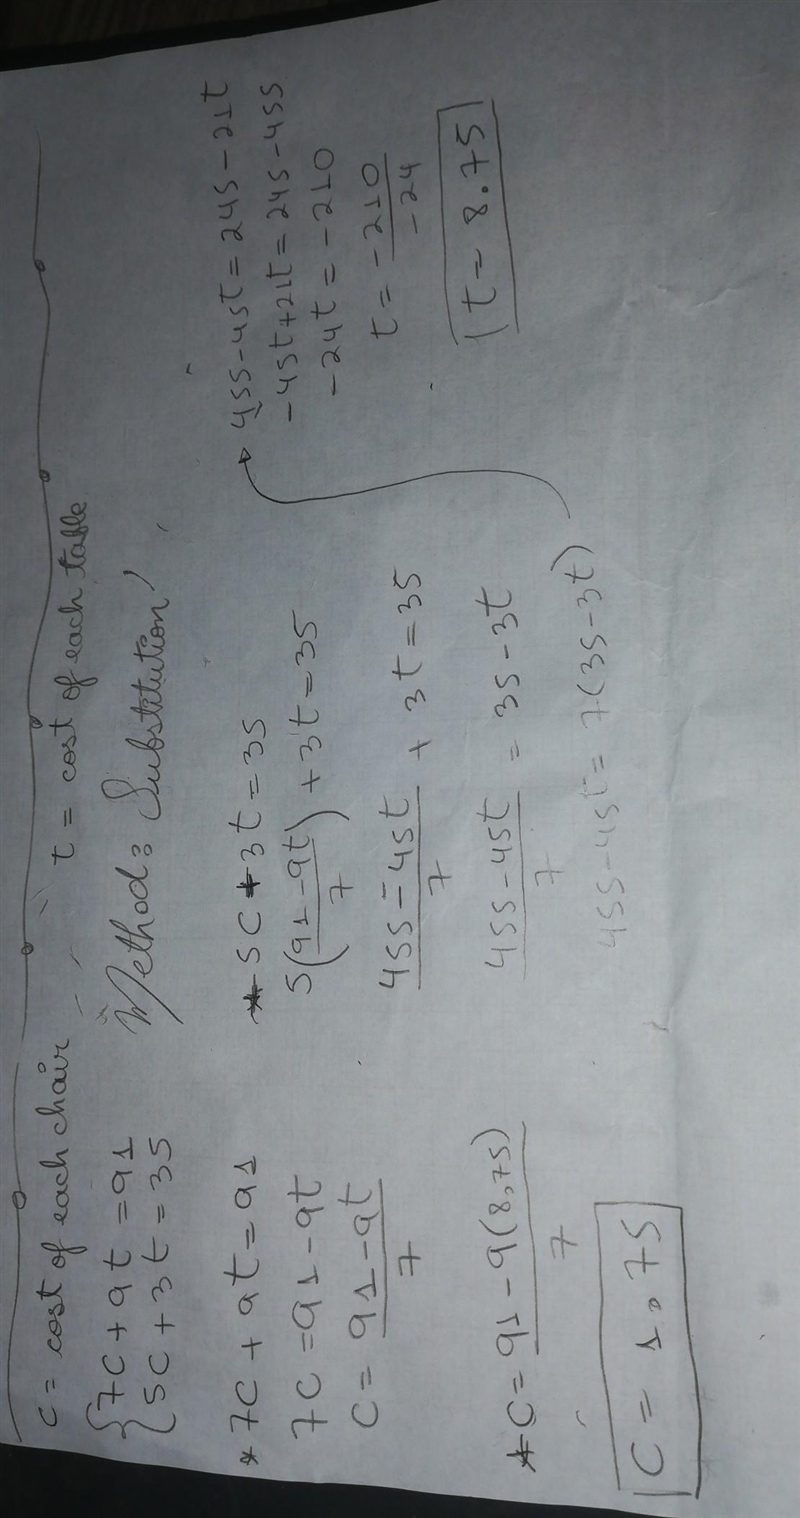 c = cost of each chair
t = cost of each table
{7c + 9t = 91
{5c + 3t = 35
Method: Substitution
* 7c + 9t = 91
7c = 91 - 9t
c = 91 - 9t / 7
* 5c + 3t = 35
5(91 - 9t / 7) + 3t = 35
455 - 45t / 7 + 3t = 35
455 - 45t / 7 = 35 - 3t
455 - 45t = 7(35 - 3t)
455 - 45t = 245 - 21t
-45t + 21t = 245 - 455
-24t = -210
t = -210 / -24
t = 8.75
* c = 91 - 9(8,75) / 7
c = 1.75